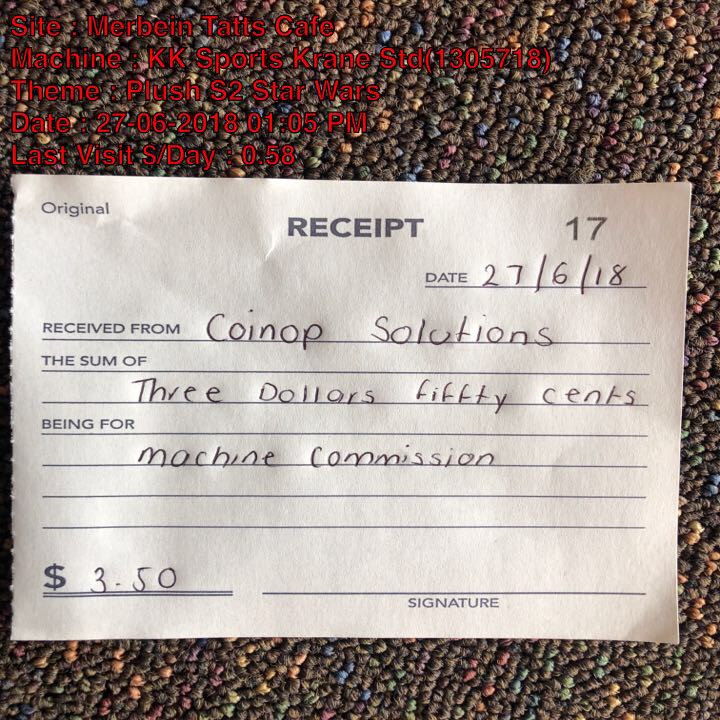 Site : Merbein Tatts Cafe
Machine : KK Sports Krane Std(1305718)
Theme : Plush S2 Star Wars
Date : 27-06-2018 01:05 PM
Last Visit $/Day : 0.58
Original
RECEIPT 17
DATE 27/6/18
RECEIVED FROM Coinop Solutions
THE SUM OF
Three Dollars fiffty cents
BEING FOR
machine commission
$ 3.50
SIGNATURE